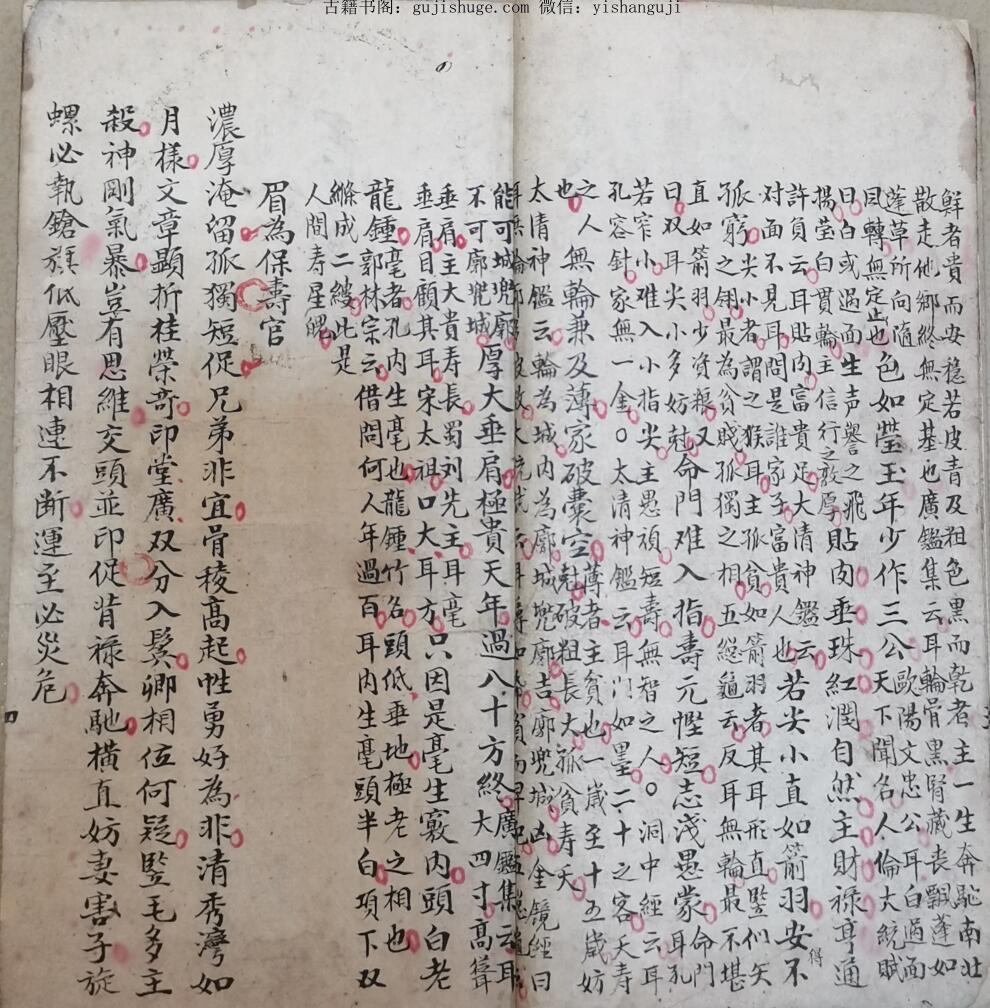 古籍书阁：gujishuge.com 微信：yishanguji
鮮者貴而安穩若皮青及粗色黑而乾者主一生奔馳南北
散走他鄉終無定基也廣鑑集云耳輪骨黑腎藏喪飄蓬如
蓬草所向隨
風轉無定止也色如瑩玉年少作三公天下聞名人倫大統賦
歐陽文忠公耳白過面
曰白或過面生声譽之飛貼肉垂珠紅潤自然主財祿亨通
揚瑩白貫輪主信行之敦厚
許負云耳貼肉富貴足大清神鑑云
對面不見耳問是誰家子富貴人也若尖小直如箭羽安不得
孤尖小者謂之猴耳主孤貧如箭羽者其耳形直豎們矢
窮之翎最為貧賤孤獨之相五總龜云反耳無輪最不堪
直如箭羽少資糧又
曰双耳尖小多妨尅命門难入指壽元慳短志淺愚蒙命門耳孔
若窄小难入小指尖主愚頑短壽無智之人○洞中經云耳
孔容針家無一金○太清神鑑云耳門如墨二十之客夭壽
之人無輪兼及薄家破囊空薄者主貧也一歲至十五歲妨
也尅破粗長大孤貧寿夭
太清神鑑云輪為城内為廓城兜廓吉廓兜城凶金镜經曰
能可城兜廓
不可廓兜城厚大垂肩極貴天年過八十方終廣鑑集云耳
大四寸高聳
垂肩主大貴寿長蜀刘先主耳毫
垂肩目顧其耳宋太祖口大耳方只因是毫生竅内頭白老
龍鍾毫者孔内生毫也龍鍾竹名頭低垂地極老之相也
郭林宗云借問何人年過百耳内生毫頭半白項下双
縧成二縷此是
人間寿星
眉為保壽官
濃厚淹留孤獨短促兄弟非宜骨稜高起性勇好為非清秀灣如
月樣文章顯折桂榮奇印堂廣双分入鬓卿相位何疑豎毛多主
殺神剛氣暴豈有思維交頭並印促背祿奔馳橫直妨妻害子旋
螺必執鎗旗低壓眼相連不断運至必災危